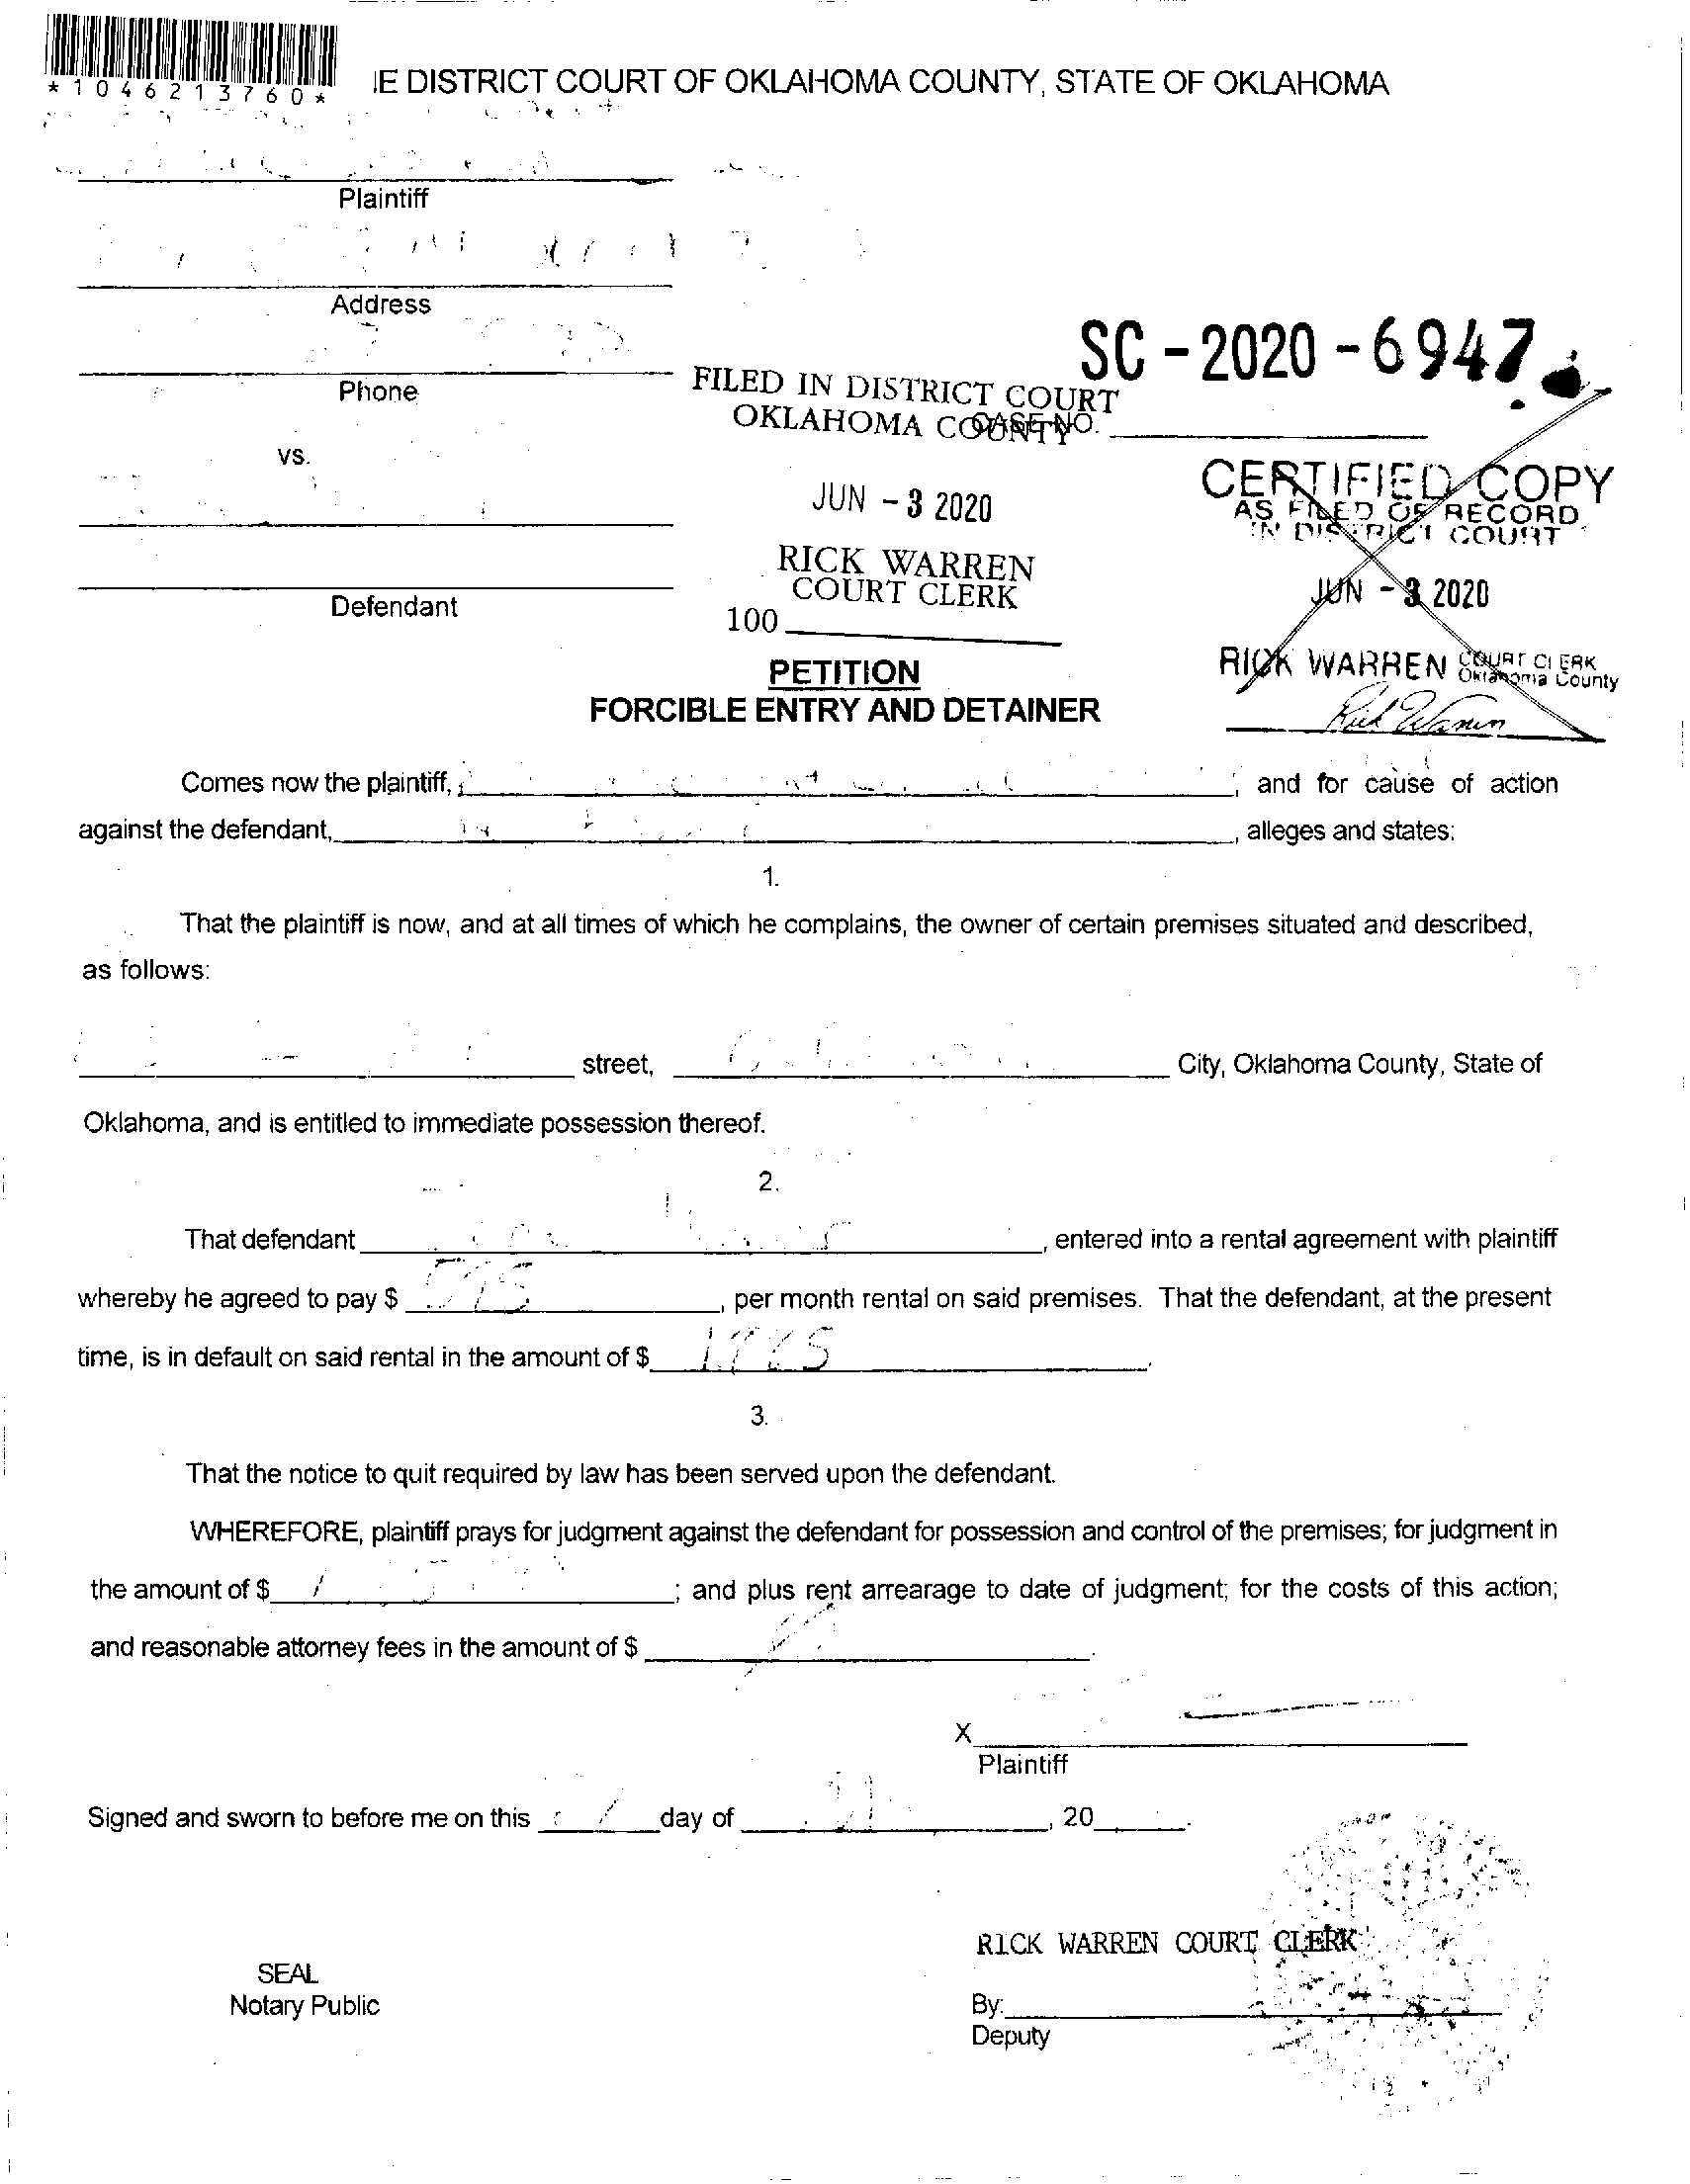 *1046213760*
IE DISTRICT COURT OF OKLAHOMA COUNTY, STATE OF OKLAHOMA
Plaintiff
Address
Phone
SC-2020-6947
FILED IN DISTRICT COURT
OKLAHOMA COUNTY
CASE NO.
vs.
JUN -3 2020
RICK WARREN
COURT CLERK
100
CERTIFIED COPY
AS FILED OF RECORD
IN DISTRICT COURT
JUN -3 2020
RICK WARREN COURT CLERK
Oklahoma County
Rick Warren
Defendant
PETITION
FORCIBLE ENTRY AND DETAINER
Comes now the plaintiff, , and for cause of action
against the defendant, , alleges and states:
1.
That the plaintiff is now, and at all times of which he complains, the owner of certain premises situated and described,
as follows:
street, City, Oklahoma County, State of
Oklahoma, and is entitled to immediate possession thereof.
2.
That defendant , entered into a rental agreement with plaintiff
whereby he agreed to pay $ , per month rental on said premises. That the defendant, at the present
time, is in default on said rental in the amount of $ .
3.
That the notice to quit required by law has been served upon the defendant.
WHEREFORE, plaintiff prays for judgment against the defendant for possession and control of the premises; for judgment in
the amount of $ ; and plus rent arrearage to date of judgment; for the costs of this action;
and reasonable attorney fees in the amount of $ .
X
Plaintiff
Signed and sworn to before me on this day of , 20 .
RICK WARREN COURT CLERK
SEAL
Notary Public
By:
Deputy